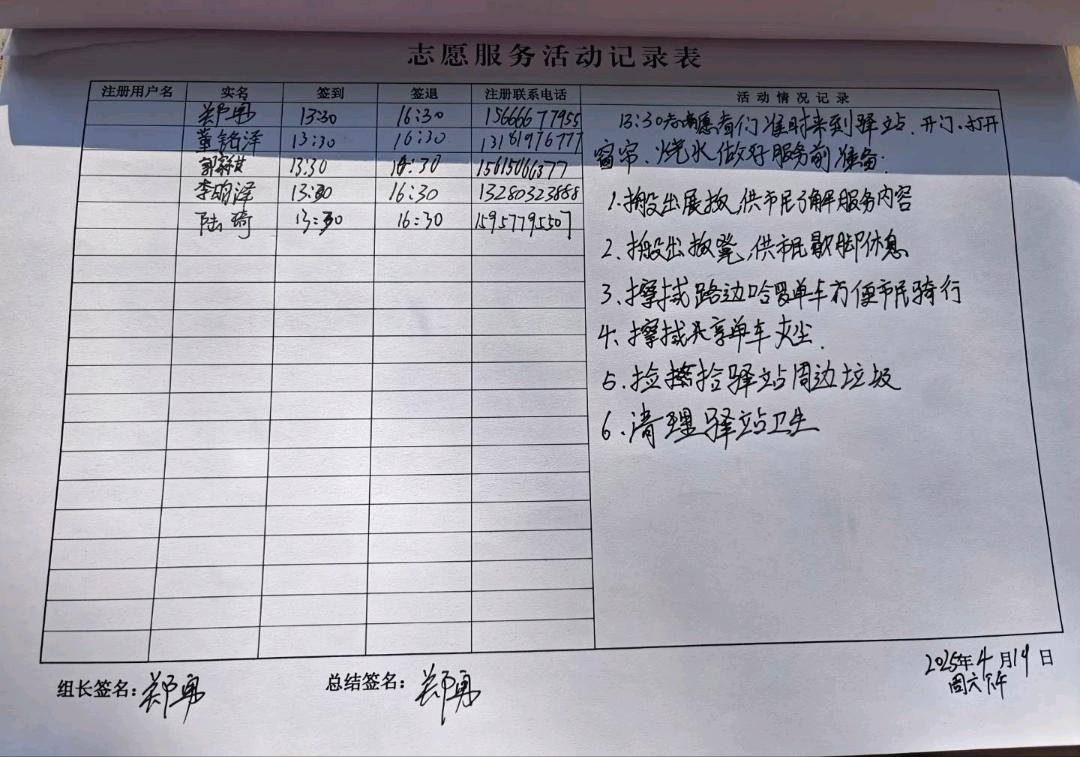 志愿服务活动记录表
注册用户名 实名 签到 签退 注册联系电话 活动情况记录
郑勇 13:30 16:30 15666677955
董铭泽 13:30 16:30 13181976777
13:30 16:30 15615066377
李明泽 13:30 16:30 13280323868
陆琦 13:30 16:30 15957795507
13:30志愿者们准时来到驿站.开门.打开
窗帘.烧水做好服务前准备:
1.搬出展板,供市民了解服务内容
2.搬出板凳,供市民歇脚休息
3.擦拭路边哈罗单车方便市民骑行
4.擦拭共享单车灰尘.
5.捡拾驿站周边垃圾
6.清理驿站卫生
组长签名:郑勇 总结签名:郑勇
2025年4月19日
周六下午